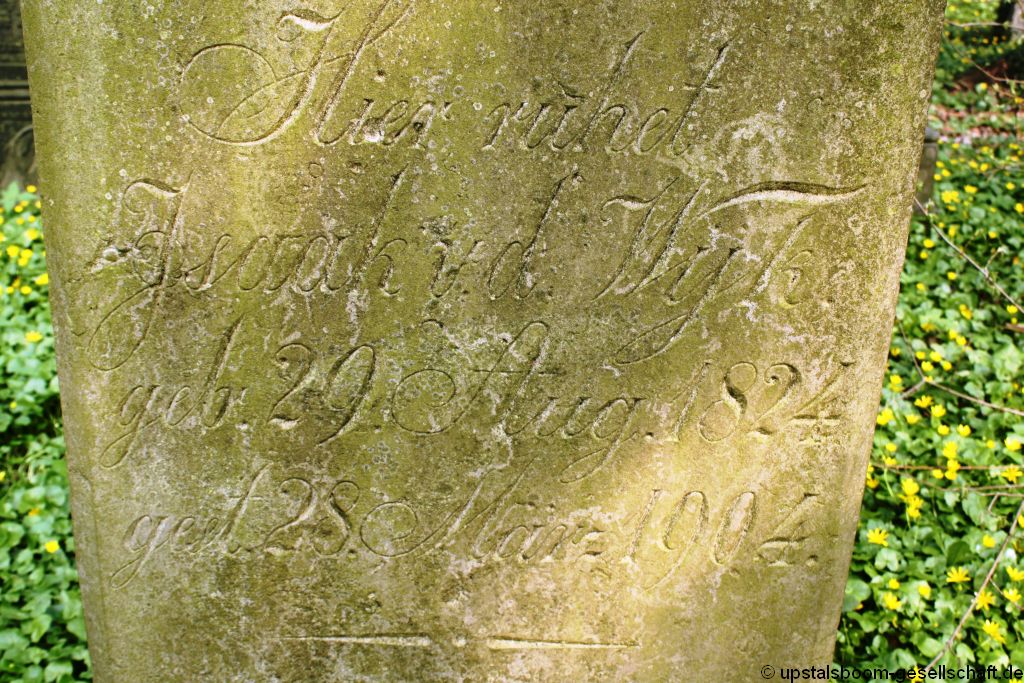 Hier ruhet
Isaak v. d. Wyk.
geb. 29. Aug. 1824
gest. 28. März 1904.
© upstalsboom-gesellschaft.de